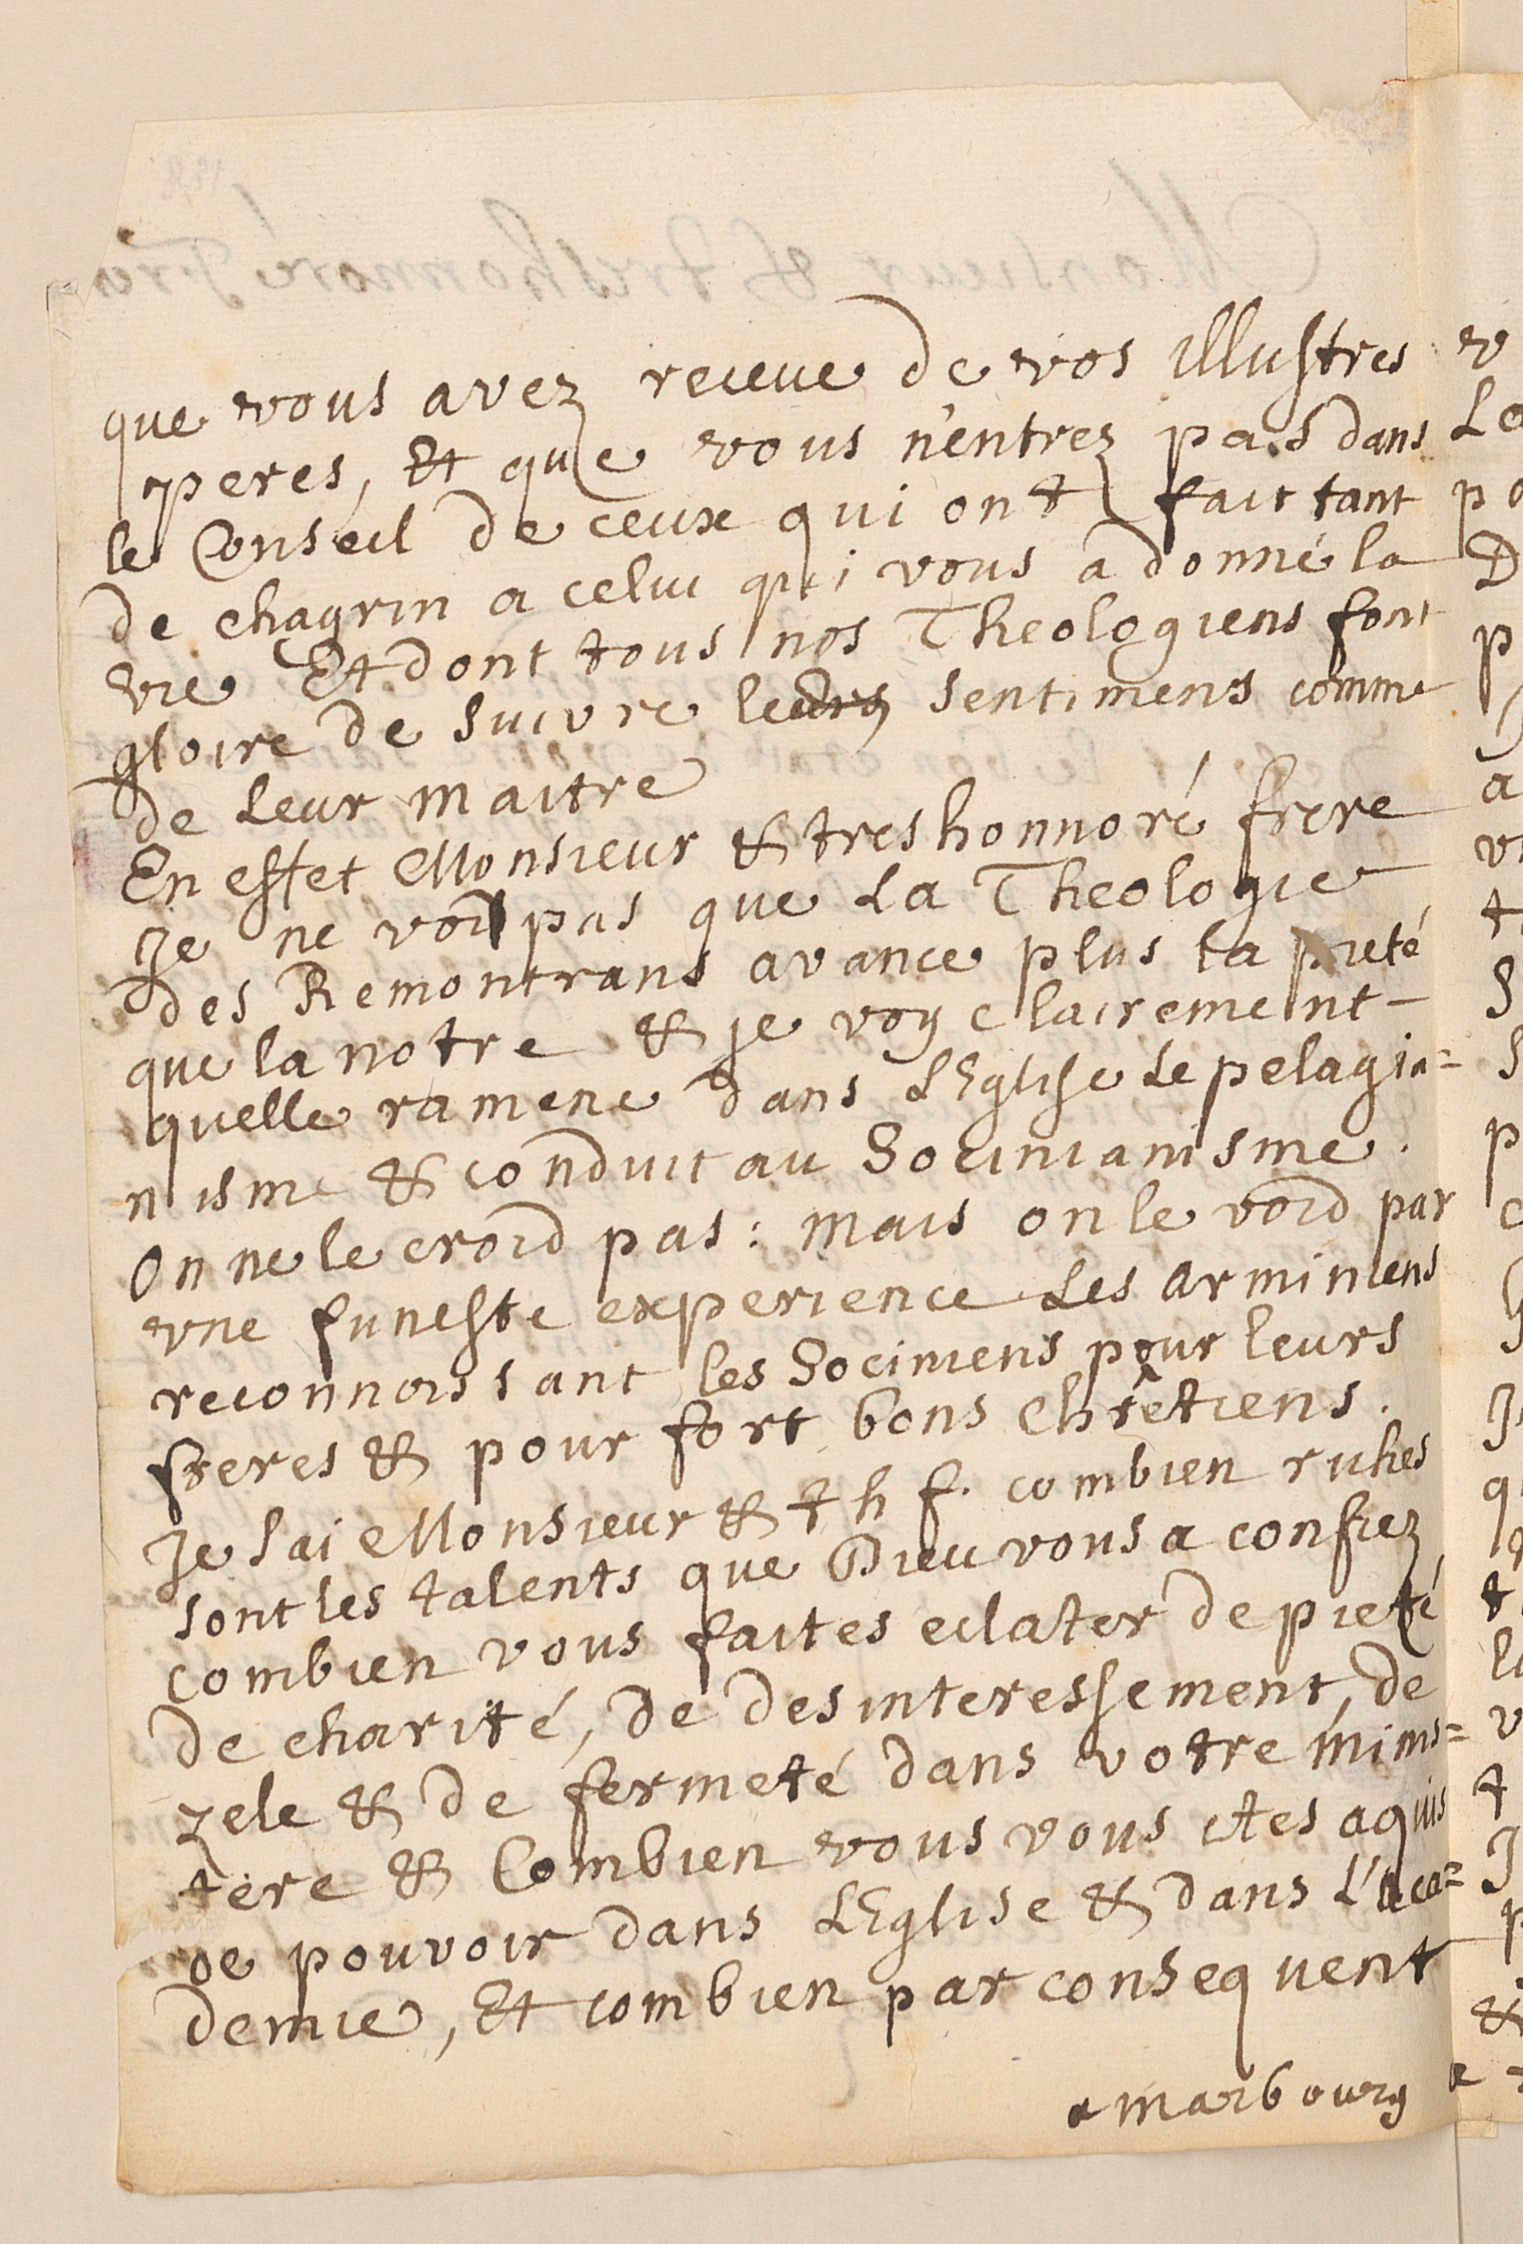 que vous avez receue de vos illustres
peres, Et que vous n'entrez pas dans
le Conseil de ceux qui ont fait tant
de chagrin a celui qui vous a donné la
vie Et dont tous nos Theologiens font
gloire de suivre les sentimens comme
de leur maitre
En effet Monsieur & treshonnoré frere
Je ne voi pas que la Theologie
des Remontrans avance plus la pieté
que la notre & je voy clairement
quelle ramene dans LEglise le pelagia=
nisme & conduit au Socinianisme.
On ne le croid pas: mais on le void par
une funeste experience les arminiens
reconnoissant les Sociniens pour leurs
freres & pour fort bons chrêtiens.
Je sai Monsieur & t h f. combien riches
sont les talents que Dieu vous a confiez,
combien vous faites eclater de pieté
de charité, de desinteressement, de
zele & de fermeté dans votre minis=
tere & Combien vous vous etes aquis
de pouvoir dans LEglise & dans L'aca=
demie, Et combien par consequent
a marbourg